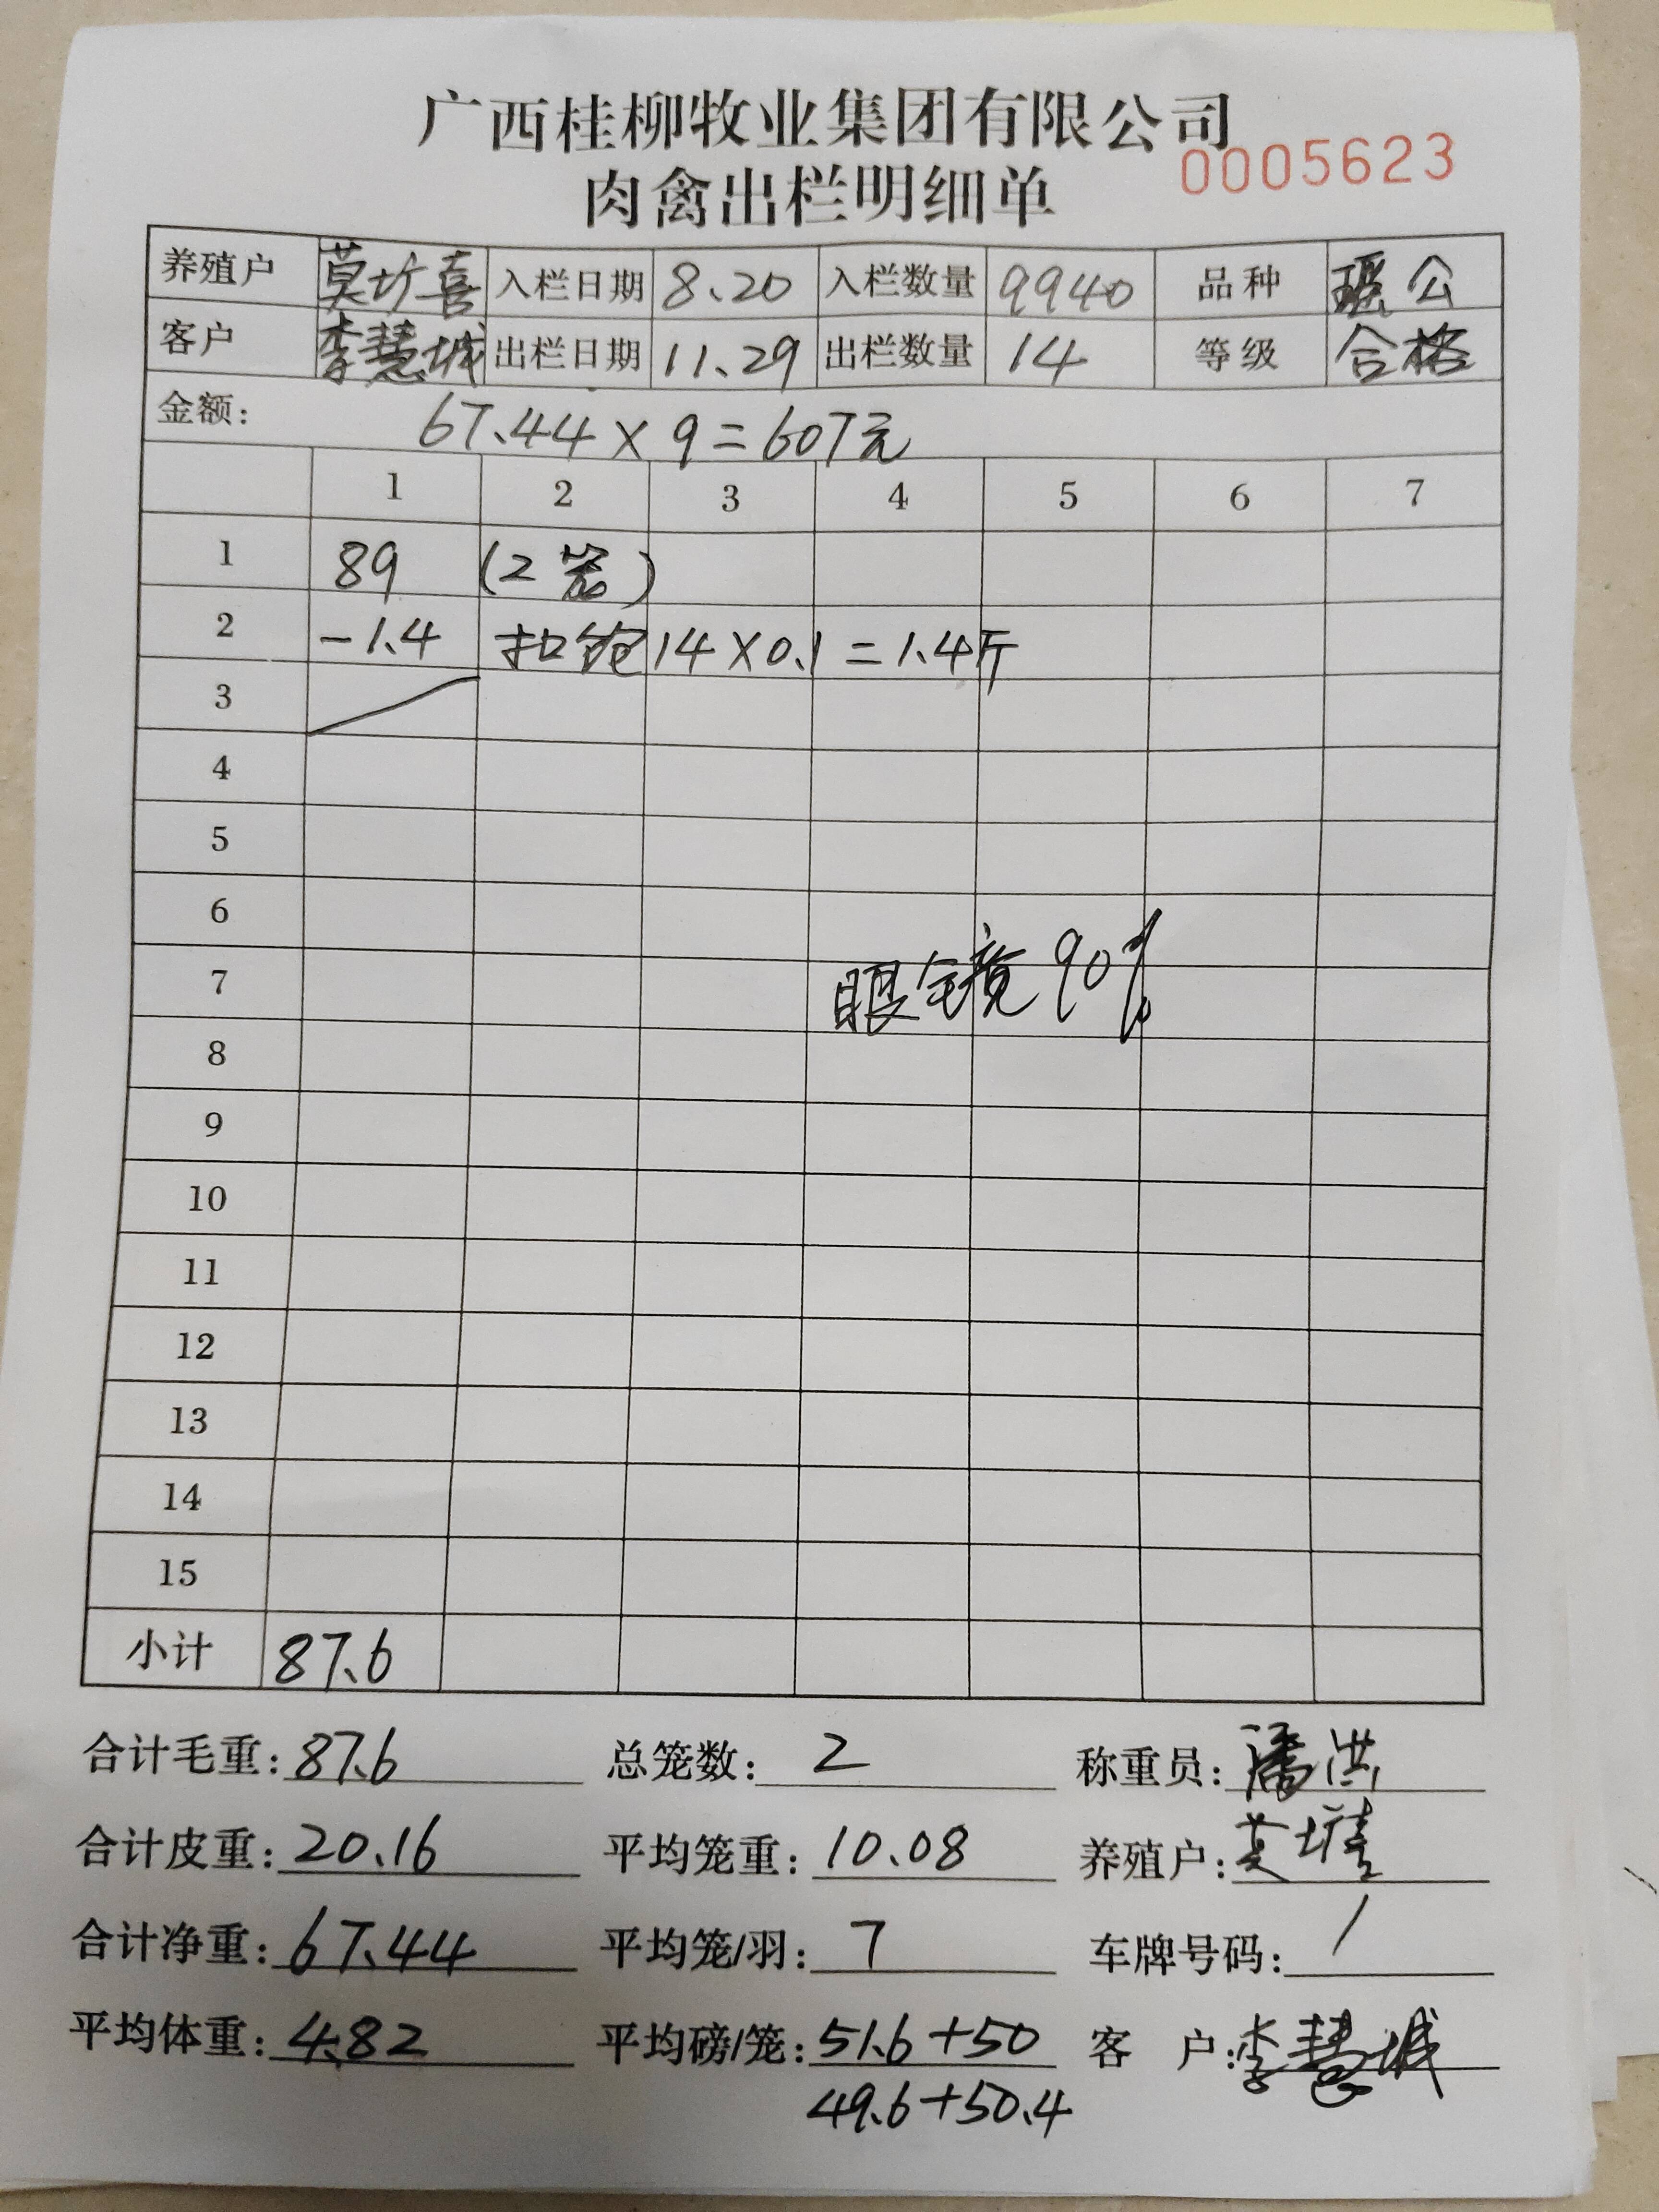 广西桂柳牧业集团有限公司
0005623
肉禽出栏明细单
养殖户 莫圹喜 入栏日期 8.20 入栏数量 9940 品种 瑶公
客户 李慧城 出栏日期 11.29 出栏数量 14 等级 合格
金额: 67.44×9=607元
1 2 3 4 5 6 7
1 89 (2笼)
2 -1.4 扣饱14×0.1=1.4斤
3
4
5
6
7 眼镜90%
8
9
10
11
12
13
14
15
小计 87.6
合计毛重:87.6 总笼数: 2 称重员:潘洪
合计皮重:20.16 平均笼重:10.08 养殖户:莫圹喜
合计净重:67.44 平均笼/羽: 7 车牌号码: /
平均体重:4.82 平均磅/笼:51.6+50 客 户:李慧城
49.6+50.4